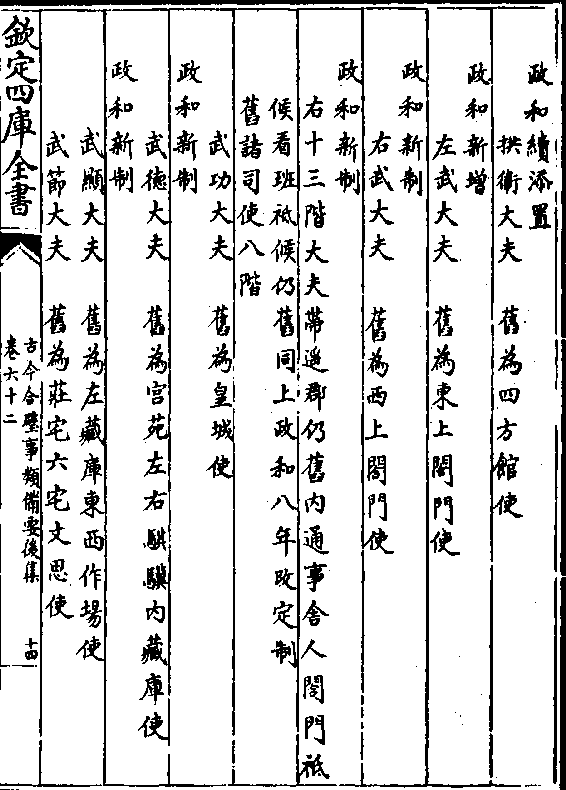 政和續添置
拱衛大夫　舊為四方館使
政和新增
左武大夫　舊為東上閤門使
政和新制
右武大夫　舊為西上閤門使
政和新制
右十三階大夫帶遥郡仍舊内通事舍人閤門祗
候看班祗候仍舊同上政和八年改定制
舊諸司使八階
武功大夫　舊為皇城使
政和新制
武德大夫　舊為宫苑左右騏驥内藏庫使
政和新制
武顯大夫　舊為左藏庫東西作場使
武節大夫　舊為莊宅六宅文思使
欽定四庫全書
古今合璧事類備要後集
卷六十二
十四